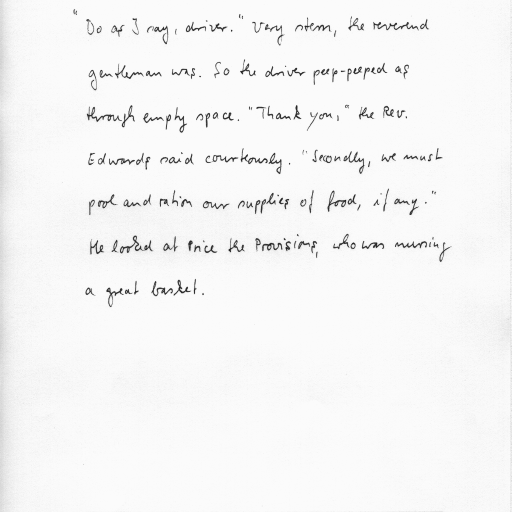 "Do as I say, driver." Very stern, the reverend
gentleman was. So the driver peep-peeped as
through empty space. "Thank you," the Rev.
Edwards said courteously. "Secondly, we must
pool and ration our supplies of food, if any."
He looked at Price the Provisions, who was nursing
a great basket.